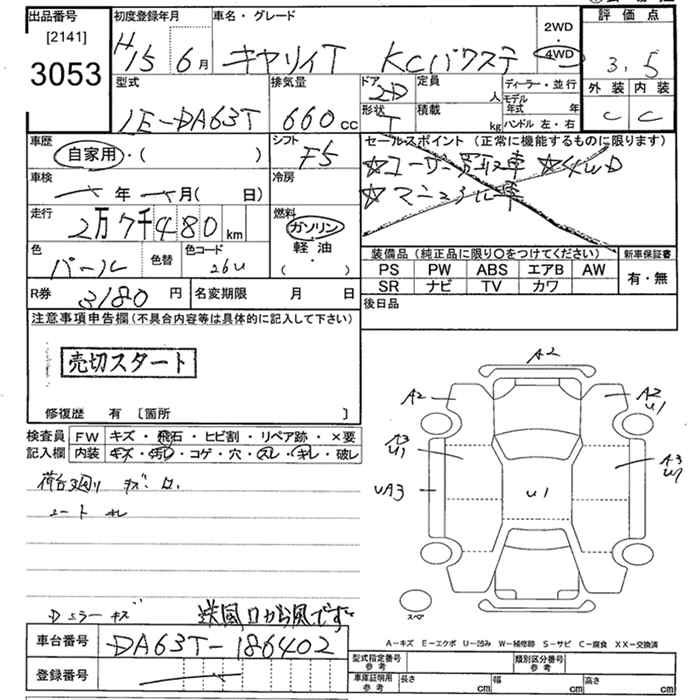 出品番号 初度登録年月 車名・グレード 2WD 4WD 評価点
[2141]
3053 H15 6月 キャリィT KCパワステ 3.5
外装 内装
C C
型式 排気量 ドア 定員 ディーラー・並行
LE-DA63T 660cc 2D 人 モデル年式 年
形状 積載 ハンドル 左・右
T kg
車歴 シフト セールスポイント(正常に機能するものに限ります)
自家用・( ) F5 ☆ユーザー買取車 ☆4WD
車検 冷房 ☆マニュアル車
年 月( 日)
走行 燃料
2万7千480km ガソリン
軽油
( ・ )
色 色替 色コード 装備品(純正品に限り○をつけてください) 新車保証書
パール 26U PS PW ABS エアB AW 有・無
R券 3180円 名変期限 月 日 SR ナビ TV カワ
後日品
注意事項申告欄(不具合内容等は具体的に記入して下さい)
売切スタート
修復歴 有 [箇所 ]
検査員 FW キズ・飛石・ヒビ割・リペア跡・×要
記入欄 内装 キズ・汚れ・コゲ・穴・スレ・キレ・破レ
A2
A2 A2 U1
A3 U1 A3
UA3 U1
スペア
Dミラーキズ 送風口から風でず
A-キズ E-エクボ U-凹み W-補修跡 S-サビ C-腐食 XX-交換済
車台番号 DA63T-186402
登録番号
型式指定番号 参考 類別区分番号 参考
車庫証明用 参考 長さ cm 幅 cm 高さ cm